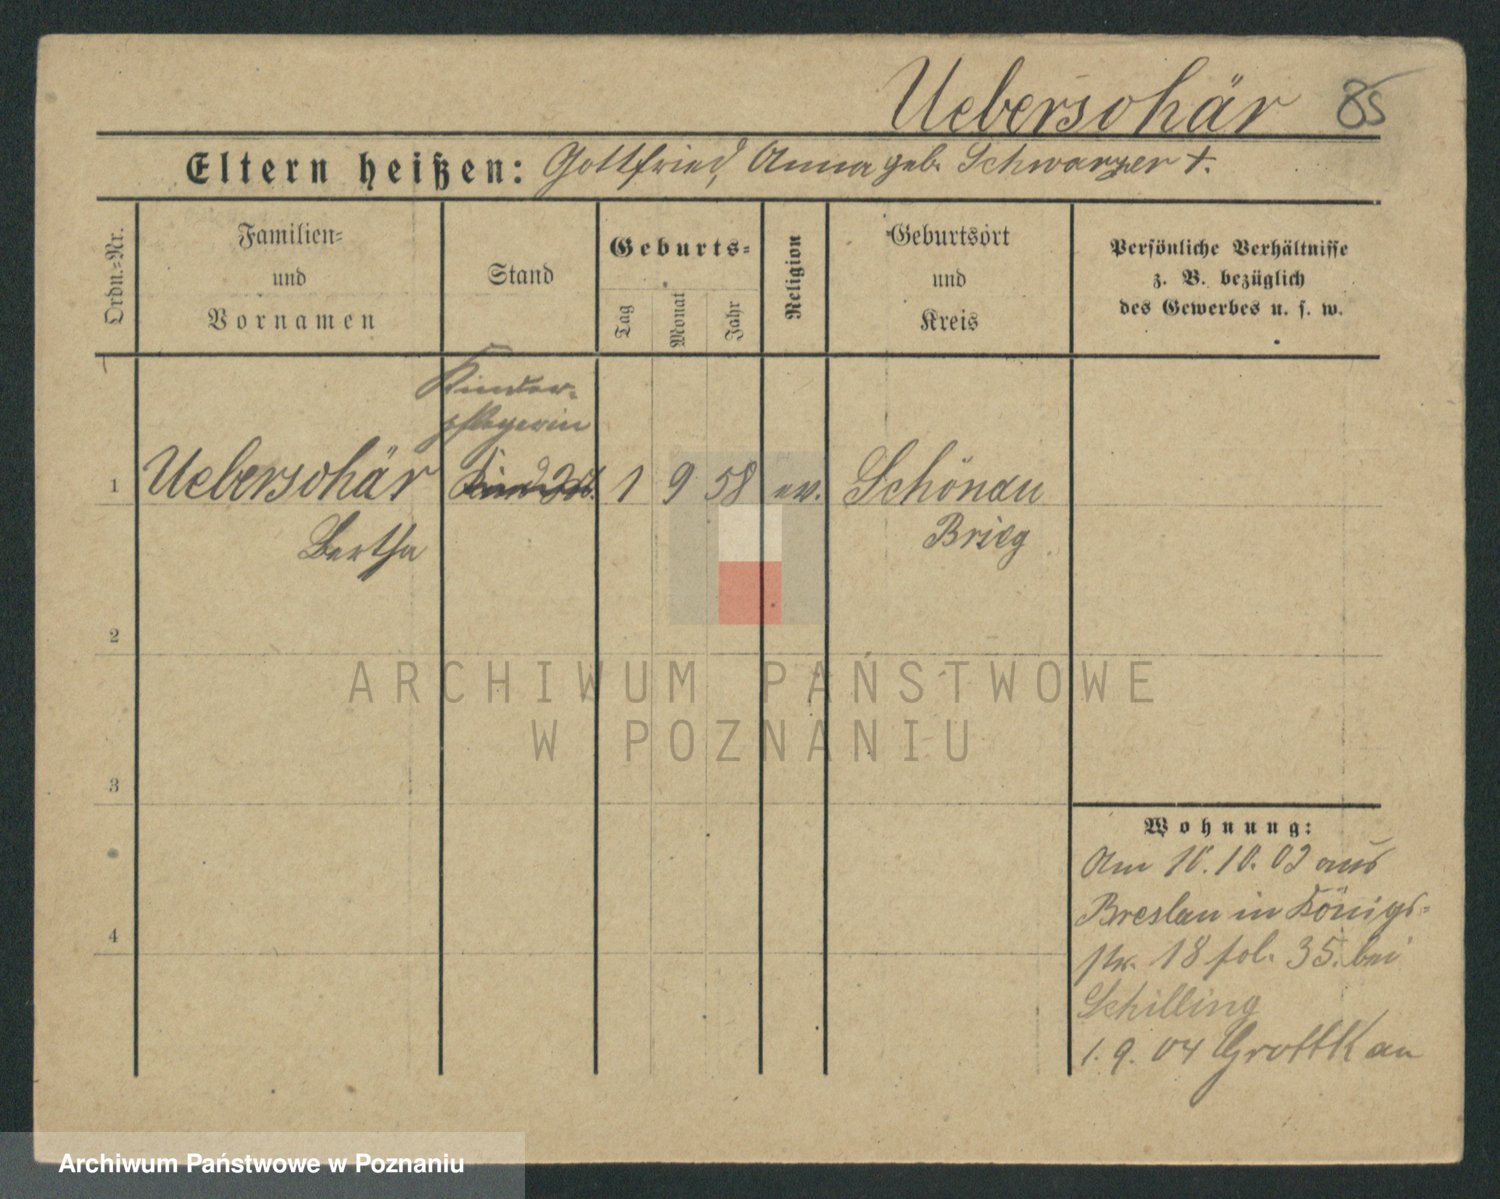 Uebersohär 85
Eltern heißen: Gottfried, Anna geb. Schwarzer †.
Ordn.-Nr.
Familien-
und
Vornamen
Stand
Geburts-
Tag
Monat
Jahr
Religion
Geburtsort
und
Kreis
Persönliche Verhältnisse
z. B. bezüglich
des Gewerbes u. s. w.
Kinder-
pflegerin
1 Uebersohär 1 9 58 ev. Schönau
Bertha Brieg
2
3
4
Wohnung:
Am 10.10.02 aus
Breslau in Königs-
18 fol. 35. bei
Schilling
1.9.04 Grottkau
ARCHIWUM PAŃSTWOWE
W POZNANIU
Archiwum Państwowe w Poznaniu